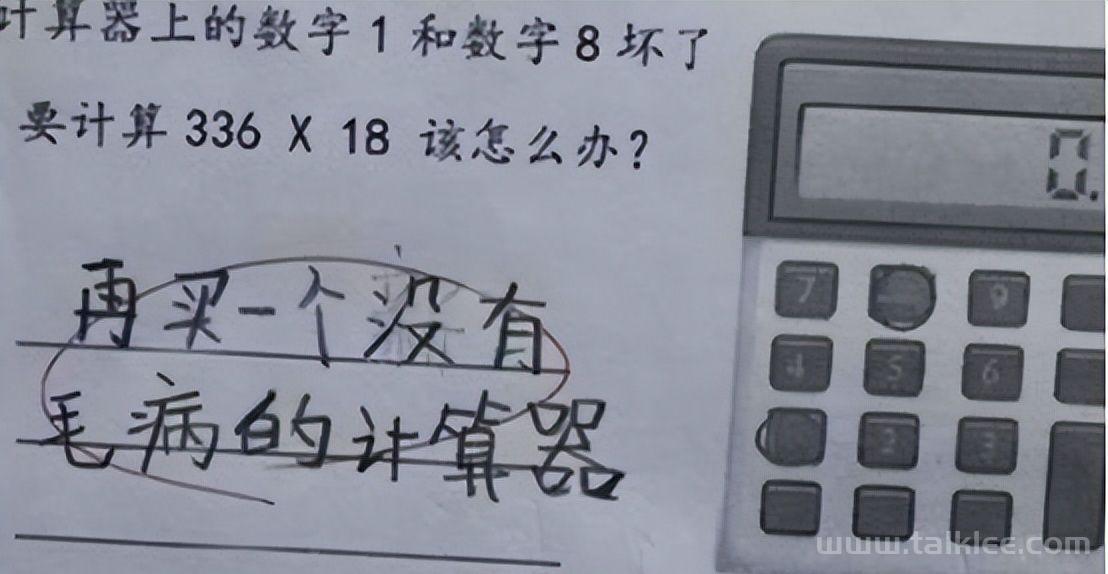 计算器上的数字 1 和数字 8 坏了
要计算 336 X 18 该怎么办？
0.
再买一个没有
毛病的计算器
7 9
4 5 6
2 3
www.talkice.com